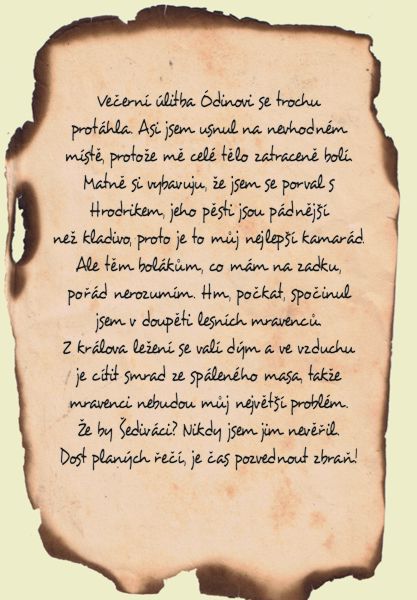 Večerní úlitba Ódinovi se trochu
protáhla. Asi jsem usnul na nevhodném
místě, protože mě celé tělo zatraceně bolí.
Matně si vybavuju, že jsem se porval s
Hrodrikem, jeho pěsti jsou pádnější
než kladivo, proto je to můj nejlepší kamarád.
Ale těm bolákům, co mám na zadku,
pořád nerozumím. Hm, počkat, spočinul
jsem v doupěti lesních mravenců.
Z králova ležení se valí dým a ve vzduchu
je cítit smrad ze spáleného masa, takže
mravenci nebudou můj největší problém.
Že by Šediváci? Nikdy jsem jim nevěřil.
Dost planých řečí, je čas pozvednout zbraň!